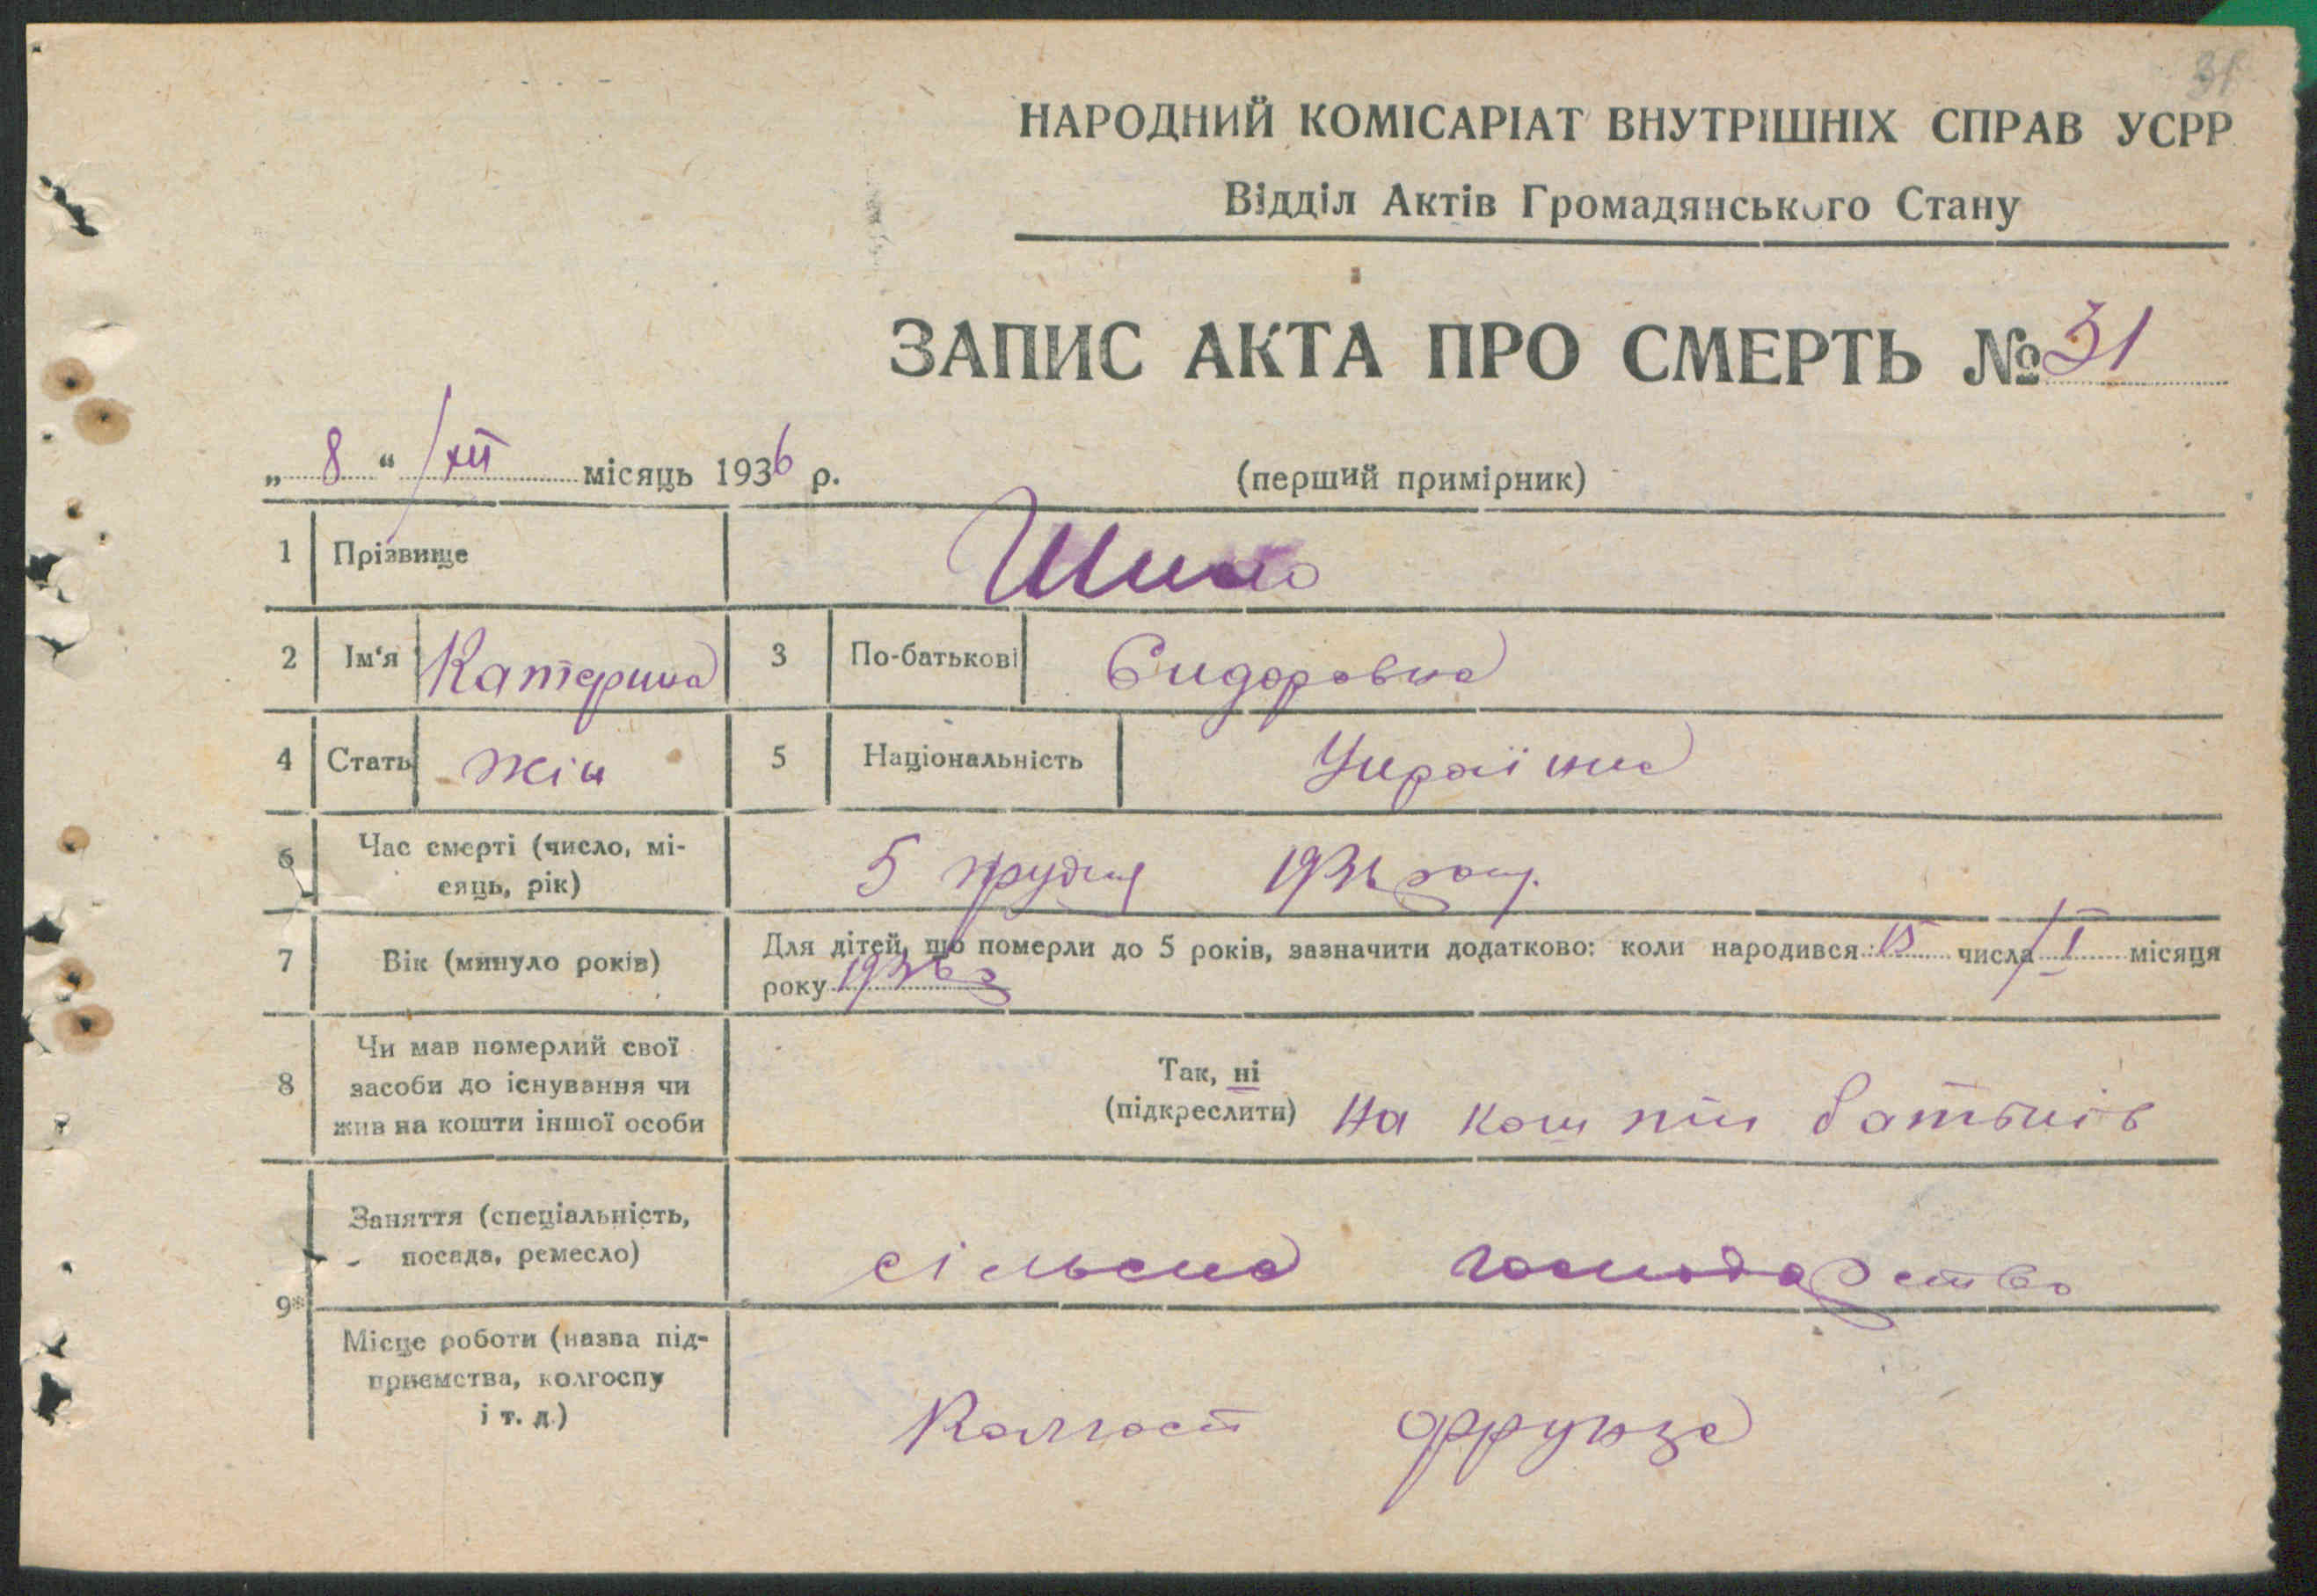 31
НАРОДНИЙ КОМІСАРІАТ ВНУТРІШНІХ СПРАВ УСРР
Відділ Актів Громадянського Стану
ЗАПИС АКТА ПРО СМЕРТЬ № 31
„ 8 “ / XII місяць 1936 р.
(перший примірник)
1 Прізвище Шило
2 Ім'я Катерина 3 По-батькові Сидоровна
4 Стать жін 5 Національність Українка
6 Час смерті (число, мі-
сяць, рік) 5 грудня 1936 року.
7 Вік (минуло років) Для дітей, що померли до 5 років, зазначити додатково: коли народився 15 числа / I місяця
року 1936 р
8 Чи мав померлий свої
засоби до існування чи
жив на кошти іншої особи
Так, ні
(підкреслити) на кошти батьків
9* Заняття (спеціальність,
посада, ремесло) сільське господарство
Місце роботи (назва під-
приємства, колгоспу
і т. д.) Колгосп Фрунзе